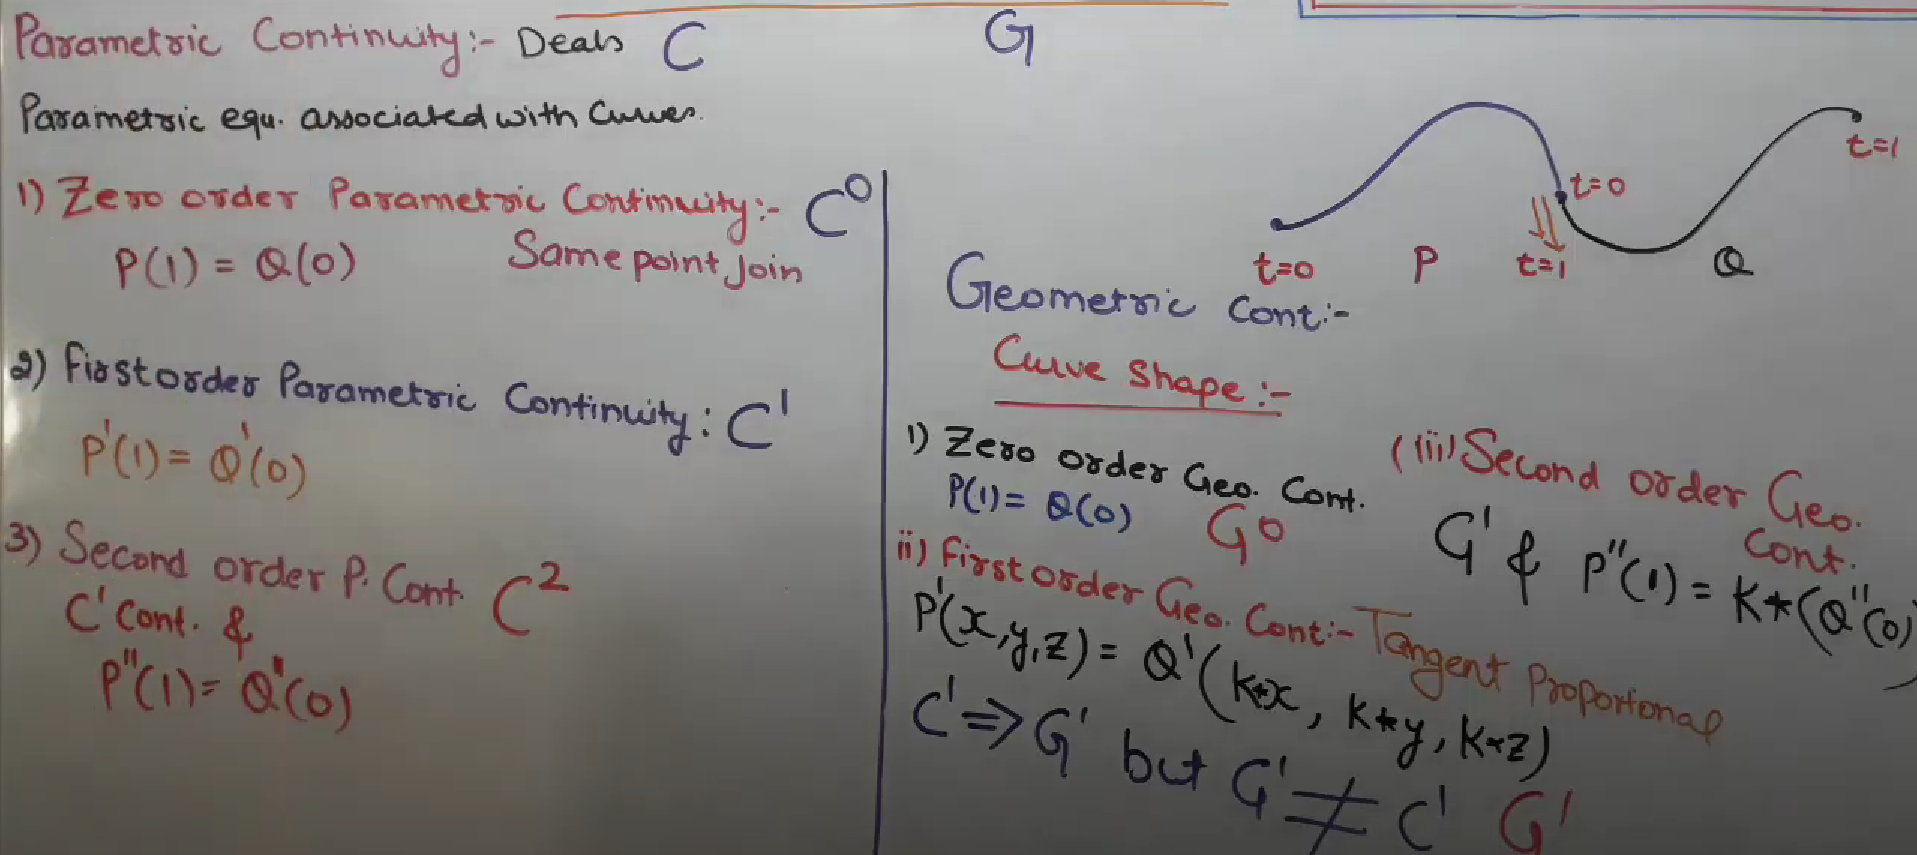 Parametric Continuity:- Deals C
Parametric equ. associated with Curves.
1) Zero order Parametric Continuity:- C⁰
P(1) = Q(0) Same point Join
2) First order Parametric Continuity: C'
P'(1) = Q'(0)
3) Second order P. Cont. C²
C' Cont. &
P''(1) = Q''(0)
G
t=0 P t=1
t=0 Q t=1
Geometric Cont:-
Curve Shape:-
1) Zero order Geo. Cont.
P(1) = Q(0) G⁰
ii) First order Geo. Cont:- Tangent Proportional
P'(x,y,z) = Q'(k*x, k*y, k*z)
C' ⇒ G' but G' ≠ C' G'
(iii) Second order Geo.
Cont.
G' & P''(1) = K*(Q''(0))